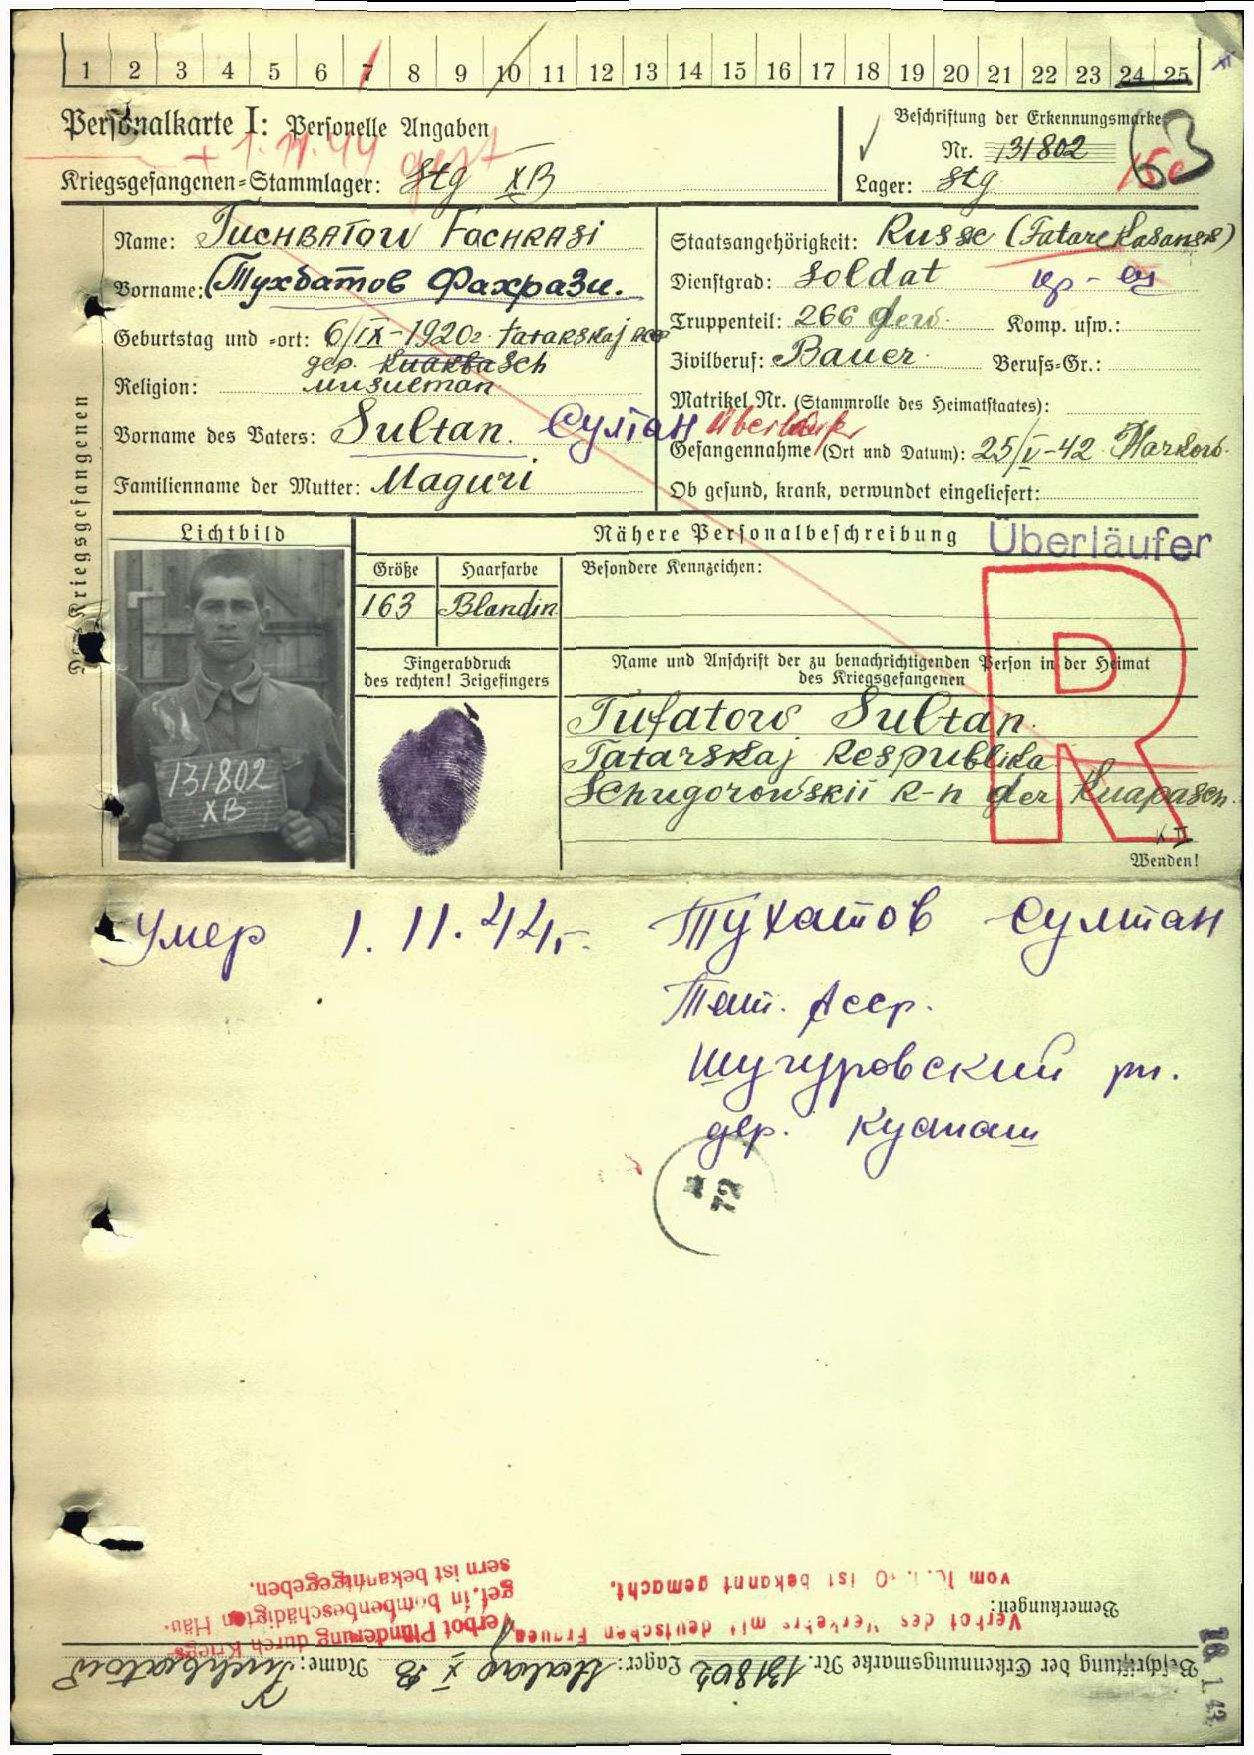 1 2 3 4 5 6 7 8 9 10 11 12 13 14 15 16 17 18 19 20 21 22 23 24 25
Personalkarte I: Personelle Angaben
Beschriftung der Erkennungsmarke
Nr. 131802
63
Kriegsgefangenen-Stammlager: Stg XB
Lager: Stg
Des Kriegsgefangenen
Name: Tuchbatow Fachrasi
Vorname: (Тухбатов Фахрази.
Geburtstag und -ort: 6/IX-1920г. tatarskaj
дер. Kuakbasch
Religion: musulman
Vorname des Vaters: Sultan. Султан
Familienname der Mutter: Maguri
Staatsangehörigkeit: Russe (Tatare Kasansk)
Dienstgrad: Soldat
Truppenteil: 266 Komp. usw.:
Zivilberuf: Bauer Berufs-Gr.:
Matrikel Nr. (Stammrolle des Heimatstaates):
Überläufer
Gefangennahme (Ort und Datum): 25/V-42 Harkow.
Ob gesund, krank, verwundet eingeliefert:
Lichtbild
Nähere Personalbeschreibung
Überläufer
Größe
163
Haarfarbe
Blandin
Besondere Kennzeichen:
Fingerabdruck
des rechten! Zeigefingers
Name und Anschrift der zu benachrichtigenden Person in der Heimat
des Kriegsgefangenen
R
Tufatow Sultan.
Tatarskaj Respublika
Schugorowskii R-n der Kuapasch.
131802
XB
Wenden!
Умер 1.11.44г.
Тухатов Султан
Тат. Асср.
Шугуровский рн.
дер. Куаташ
72
Bemerkungen:
Verbot des Verkehrs mit deutschen Frauen
vom ist bekannt gemacht.
Verbot Plünderung durch Kriegs
gef. in bombenbeschädigten Häu-
sern ist bekanntgegeben.
Beschriftung der Erkennungsmarke Nr. 131802 Lager: Stalag XB Name: Tuchbatow
18. 1. 43